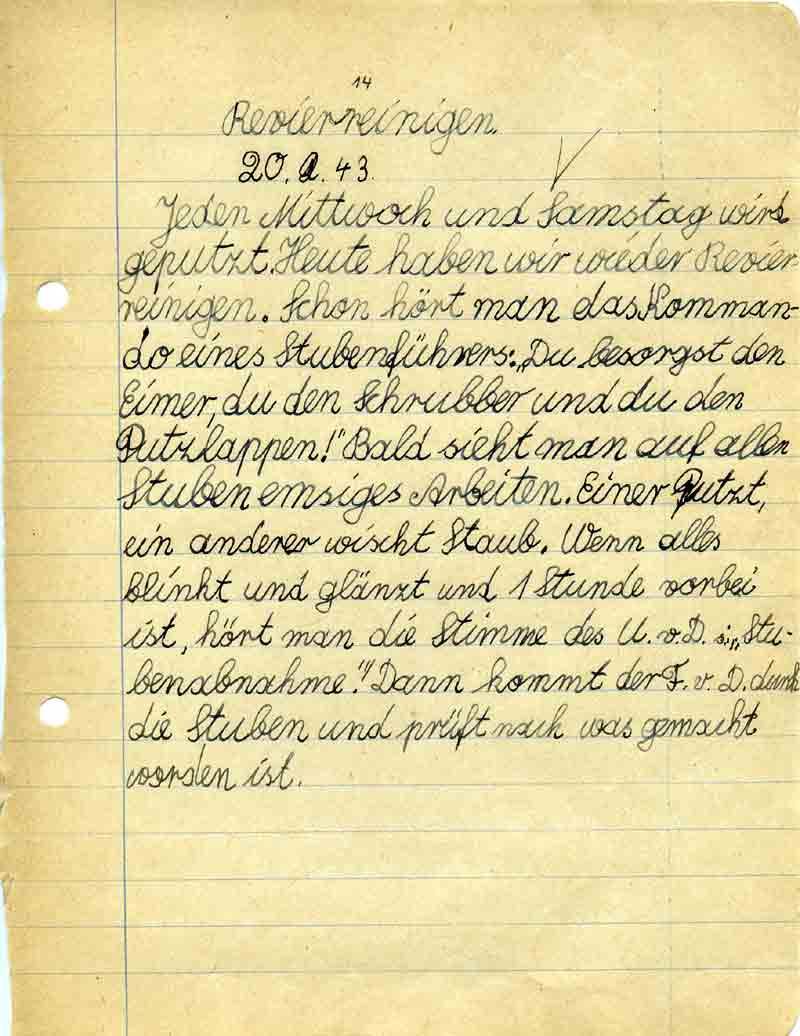 14
Revierreinigen.
20. 2. 43.
Jeden Mittwoch und Samstag wird
geputzt. Heute haben wir wieder Revier-
reinigen. Schon hört man das Komman-
do eines Stubenführers: „Du besorgst den
Eimer, du den Schrubber und du den
Putzlappen!" Bald sieht man auf allen
Stuben emsiges Arbeiten. Einer putzt,
ein anderer wischt Staub. Wenn alles
blinkt und glänzt und 1 Stunde vorbei
ist, hört man die Stimme des U. v. D.: „Stu-
benabnahme!" Dann kommt der F. v. D. durch
die Stuben und prüft nach was gemacht
worden ist.